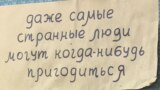 даже самые
странные люди
могут когда-нибудь
пригодиться